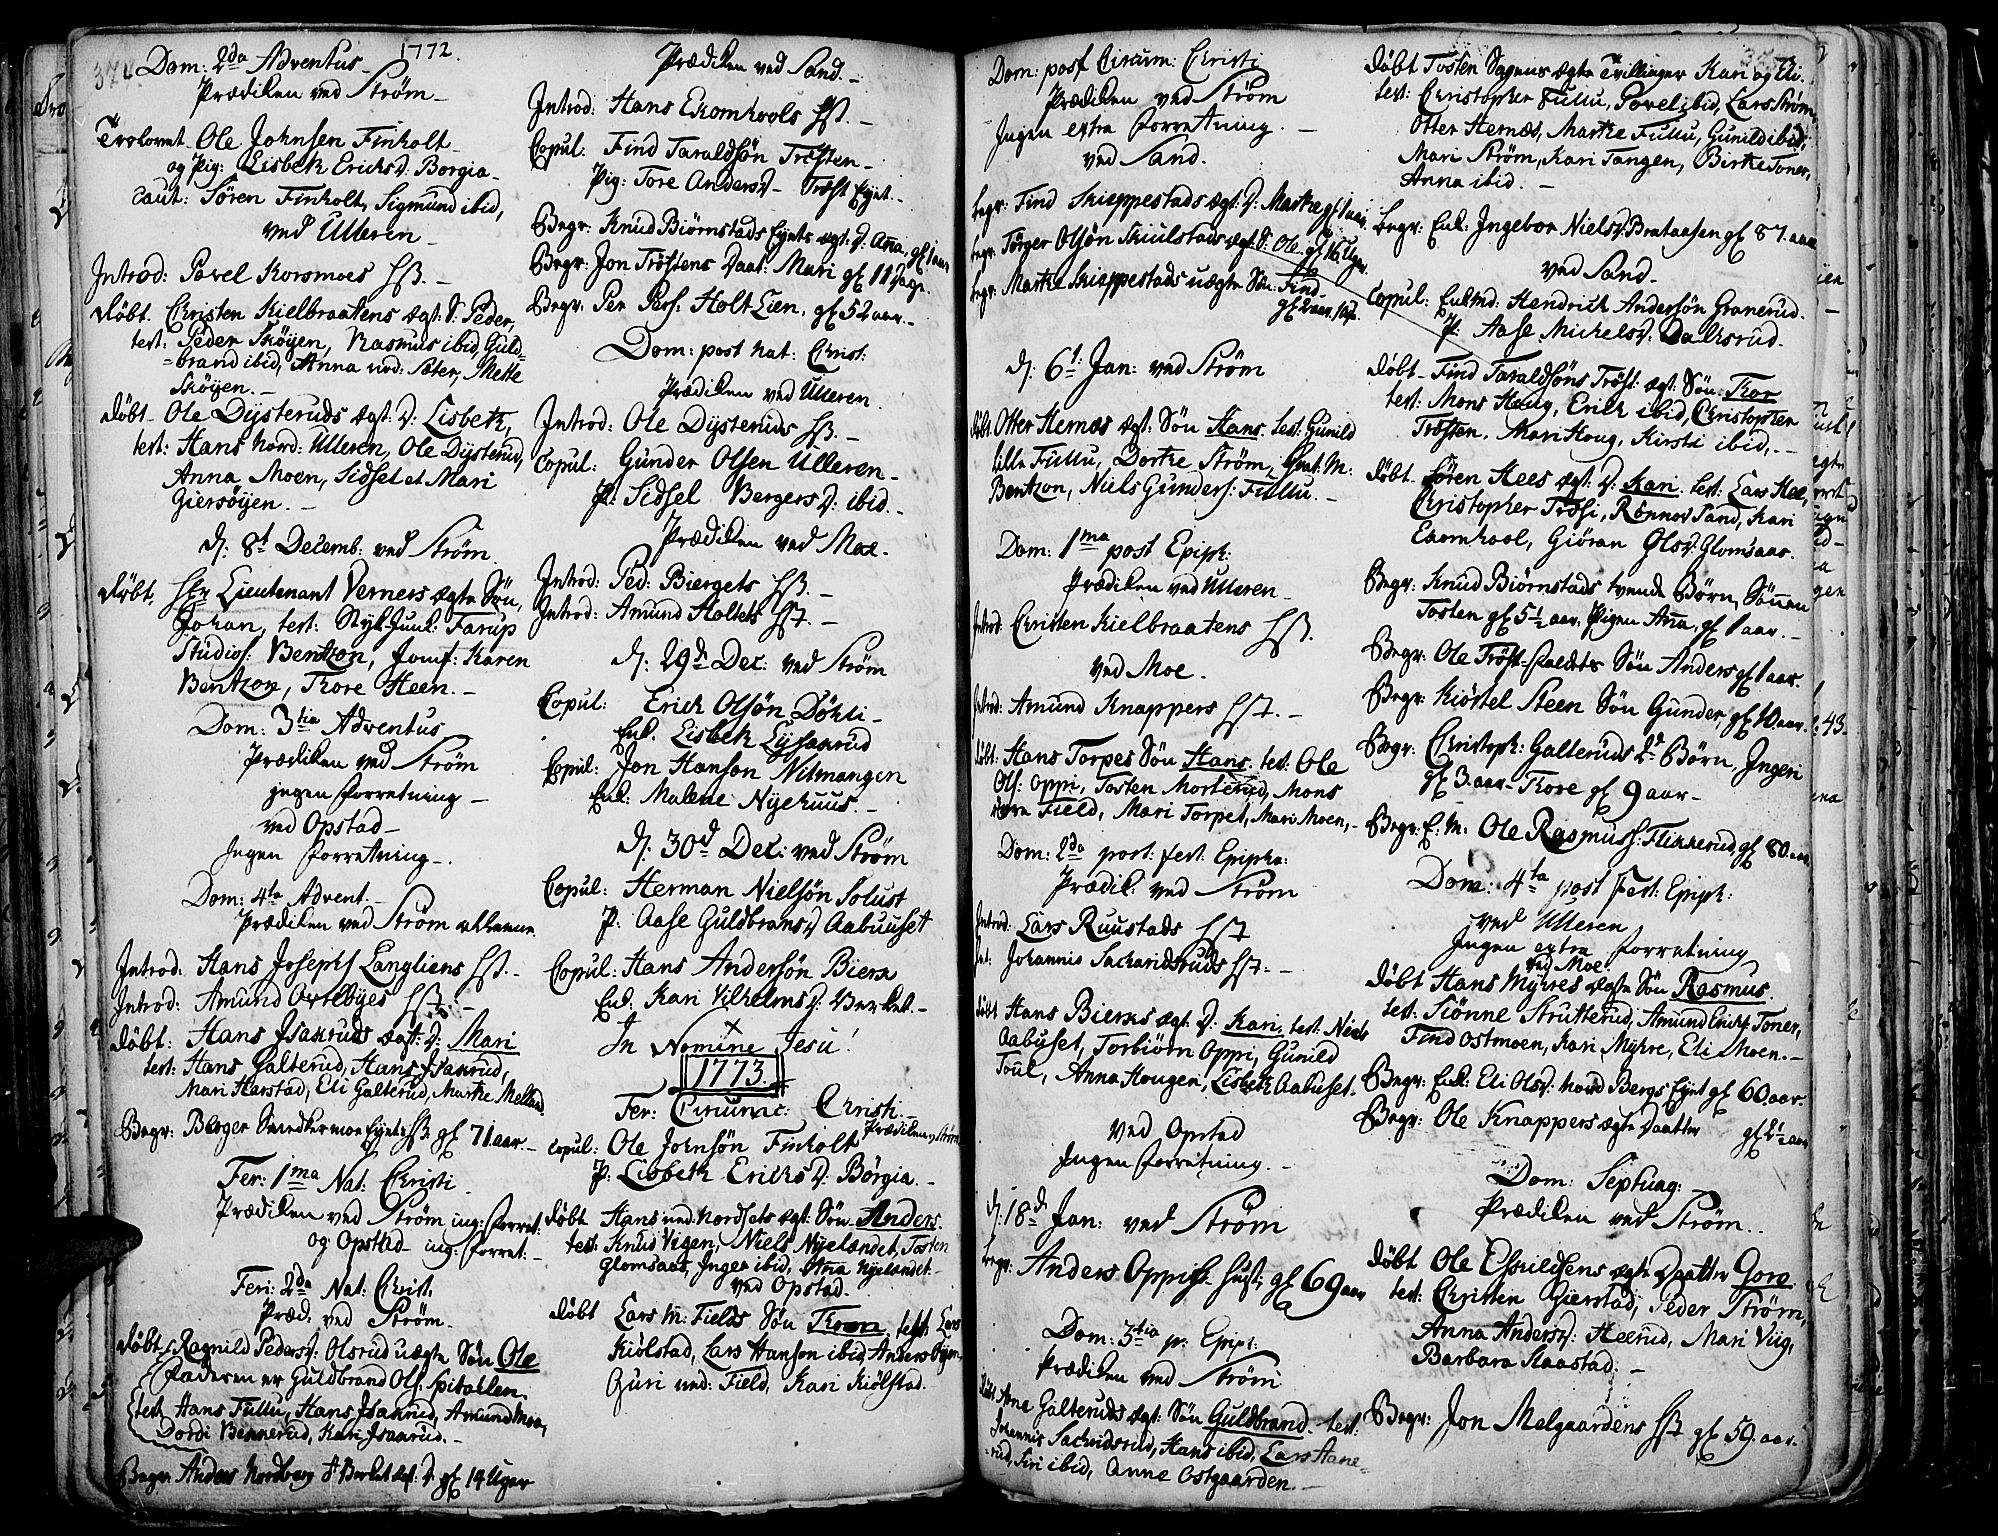 374
1772.
Dom: 2da Adventus
Prædiken ved Strøm
Trolovet Ole Johnsen Finholt
og Pig: Lisbeth Ericksd: Borgia
caut: Sören Finholt, Sigmund ibid,
ved Ulleren
Introd: Povel Korsmoes
döbt. Christen Kielbraatens ægt: S: Peder,
test: Peder Skøyen, Rasmus ibid, Guld-
=brand ibid, Anna ned: Sæter, Mette
Skøyen.
döbt Ole Dysteruds ægt: D: Lisbeth,
test: Hans Nord: Ulleren, Ole Dysterud,
Anna Moen, Sidsel et Mari
Giersøyen.
d: 8t Decemb: ved Strøm
döbt. Hr Lieutenant Verners ægte Søn,
Johan, test: Styk Junk: Farup
Studios: Bentzon, Jomf: Karen
Bentzon, Thore Heen.
Dom: 3tia Adventus
Prædiken ved Strøm
jngen forretning
ved Opstad
Jngen forretning
Dom: 4ta Advent.
Prædiken ved Strøm allene
Introd: Hans Josephs Langliens
Introd: Amund Overbyes
döbt: Hans Isakruds ægt: D: Mari
test: Hans Galterud, Hans Isakrud,
Mari Harstad, Eli Galterud, Marthe Mellad
Begr: Berger Snedkermoe Eyets gl 71 aar.
Fer: 1ma Nat: Christi
Prædiken ved Strøm ing: forret:
og Opstad ing: forret.
Fer: 2da Nat: Christ.
Præd: ved Strøm.
döbt Ragnild Pedersd: Olsrud uægte Søn Ole
Faderen er Guldbrand Ols: Spitalen.
test: Hans Fullu, Hans Isakrud, Amund Moe,
Dordi Bennerud, Kari Isaarud.
Begr: Anders Nordberg gl 14 Uger
Prædiken ved Sand.
Introd: Hans Ekornhools
Copul: Find Taraldsön Tröften
Pig: Tore Andersd Tröft Eyet.
Begr: Knud Biörnstads Eyets ægt: D: Anna, gl 1 aar
Begr: Jon Tröftens Daat: Mari gl 11 Dage.
Begr: Per Pers: Holt Lien, gl 52 aar.
Dom: post Nat: Christ:
Prædiken ved Ulleren
Introd: Ole Dysteruds
Copul: Gunder Olsen Ulleren
P: Sidsel Bergersd: ibid.
Prædiken ved Moe.
Introd: Ped: Biergets
Introd: Amund Holtets
d: 29d Dec: ved Strøm
Copul: Erick Olsön Döhli
Enk. Lisbeth Lysakrud
Copul: Jon Hanson Nitmangen
Enk: Malene Nyehuus
d: 30d Dec: ved Strøm
Copul: Herman Nielsön Solust
P: Aase Guldbransd Aabuuset
Copul: Hans Andersön Bierke
Enk. Kari Vilhelmsd: Berket
In Nomine Jesu!
1773.
Fer: Circumc: Christi
Prædiken Strøm
Copul: Ole Johnsön Finholt
P: Lisbeth Ericksd: Börgia.
döbt Hans ned: Nordsets ægt: Søn Anders.
test: Knud Vigen, Niels Nyelandet, Tosten
Glomsaas, Inger ibid, Anna Nyelandet.
ved Opstad.
döbt Lars M: Fields Søn Thron, test: Lars
Kiölstad, Lars Hanson ibid, Anders
Guri ned: Field, Kari Kiölstad.
Dom: post Circum: Christi
Prædiken ved Strøm
Jngen extra forretning.
ved Sand.
begr: Find Skieppestads ægt: D: Marthe gl 1 aar
begr: Torger Olsön Skiulstads ægt: S: Ole gl 16 Uger.
begr: Marthe Skieppestads uægte Søn: Find
gl 2 aar
d: 6t Jan: ved Strøm
döbt Otter Hernæs ægt: Søn Hans, test: Gunild
lille Fullu, Dorthe Strøm, Stud. M:
Bentzon, Niels Gunders: Fullu.
Dom: 1ma post Epiph:
Prædiken ved Ulleren
Introd: Christen Kielbraatens
ved Moe.
Introd: Amund Knappers
döbt: Hans Torpes Søn Hans. test: Ole
Ols: Oppi, Tosten Morterud, Mons
Field, Mari Torpet, Mari Moen,
Dom: 2da post: fest: Epipha:
Prædik: ved Strøm
Introd: Lars Ruustads
Int: Johannis Sacharidsruds
döbt Hans Bierks ægt: D: Kari, test: Niels
Aabuset, Torbiørn Oppi, Gunild
Toul, Anna Hougen, Lisbeth Aabuset.
ved Opstad
Jngen forretning.
d: 18d Jan: ved Strøm
begr: Anders Oppi gl 69 aar
Dom: 3tia p: Epiph:
Prædiken ved Strøm
döbt Arne Galteruds ægt: Søn Guldbrand. test:
Johannis Sachridsrud, Hans ibid, Lars Hane=
rud, Siri ibid, Anne Ostgaarden.
döbt Tosten Sagens ægte Tvillinger Kari og Eli.
test: Christopher Fullu, Povel ibid, Lars Strøm,
Otter Hernæs, Marthe Fullu, Gunild ibid,
Mari Strøm, Kari Tangen, Birthe Toner,
Anna ibid.
Begr: Enk: Ingebor Nielsd: Brataasen gl 87 aar
ved Sand.
Copul: Enkmd: Hendrich Andersön Granerud.
P: Aase Michelsd: Dalksrud.
döbt Find Taraldsöns Tröft: ægt: Søn: Thor
test: Mons Houg, Erich ibid, Christopher
Tröften, Mari Houg, Kirsti ibid,
döbt Sören Hees ægt: D: Kari test: Lars Hee,
Christopher Tröfti, Rönnov Sand, Kari
Ekornhool, Giöran Olsd: Glomsaas.
Begr: Knud Biörnstads tvende Børn, Sønnen
Tosten gl 5½ aar, Pigen Anna, gl 1 aar.
Begr: Ole Tröft-faldets Søn Anders gl 1 aar.
Begr: Kiöstel Steen Søn Gunder, gl 10 aar.
Begr: Christoph: Galteruds 2de Børn, Jngeri
gl 3 aar Thore gl 9 aar
Begr: E: M: Ole Rasmuss: Flikkerud, gl 80 aar
Dom: 4ta post Fest: Epiph:
ved Ulleren
Jngen extra forretning
ved Moe.
döbt Hans Myhres ægte Søn Rasmus.
test: Siønne Strutterud, Amund Erichs Toner,
Find Ostmoen, Kari Myhre, Eli Moen.
Begr: Enk: Eli Olsd: Nord Bergs Eyet gl 60 aar.
Begr: Ole Knappers ægte Daatter gl 2½ aar
Dom: Septuag:
Prædiken ved Strøm.
döbt Ole Eskildsens ægte Daatter Gore
test: Christen Gierstad, Peder Strøm,
Anna Andersd: Heerud, Mari Viig,
Barbara Kaastad.
Begr: Jon Melgaardens gl 59 aar.